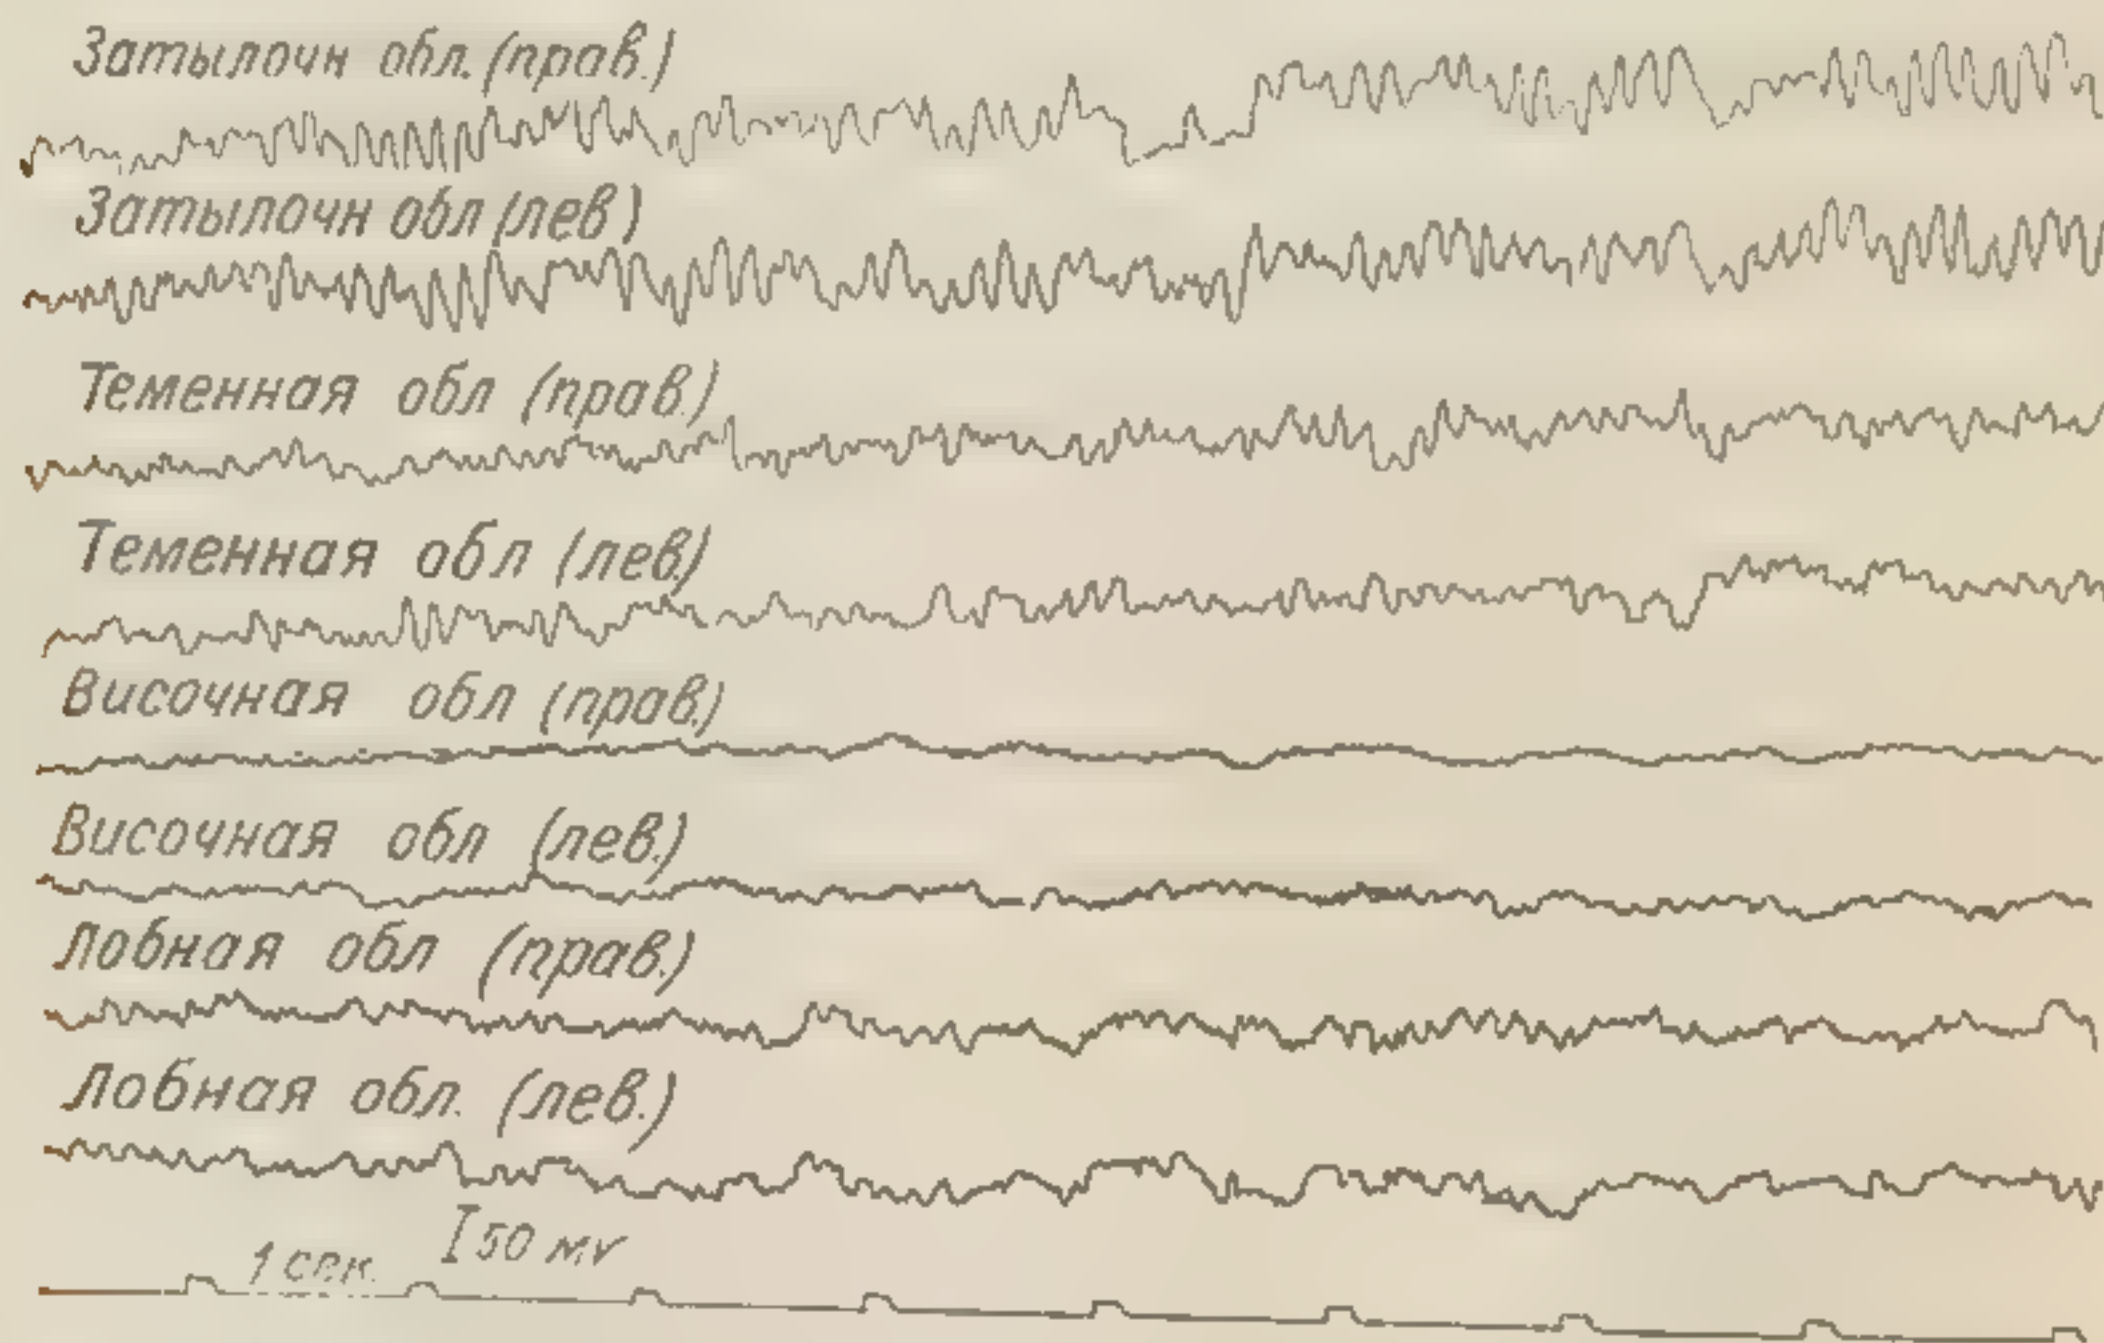 Затылочн обл. (прав.)
Затылочн обл (лев)
Теменная обл (прав.)
Теменная обл (лев.)
Височная обл (прав.)
Височная обл (лев.)
Лобная обл (прав.)
Лобная обл. (лев.)
1 сек. I 50 мv